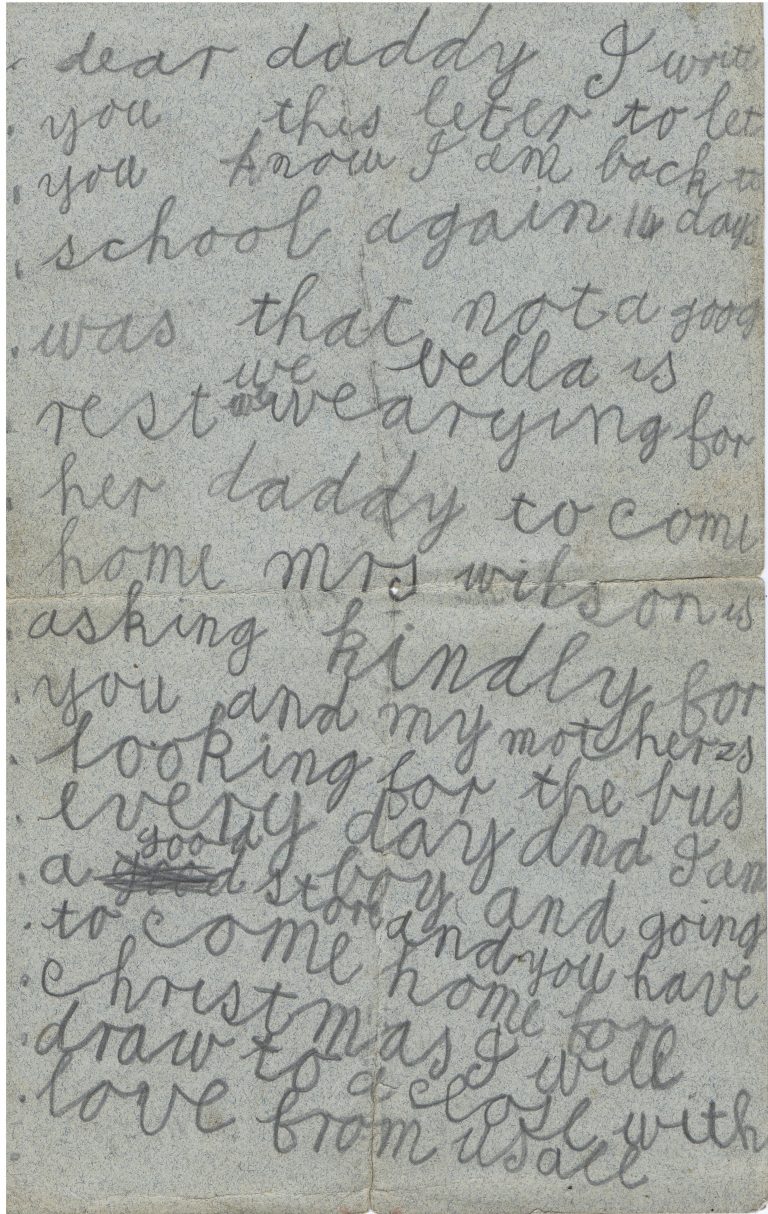 dear daddy I write
you this leter to let
you know I am back to
school again 14 days
was that not a good
we bella is
rest wearying for
her daddy to come
home mrs wilson is
asking kindly for
you and my mother is
looking for the bus
every day and I am
good
a boy and going
to stop and you have
to come home for
christmas I will
draw to a close with
love from us all